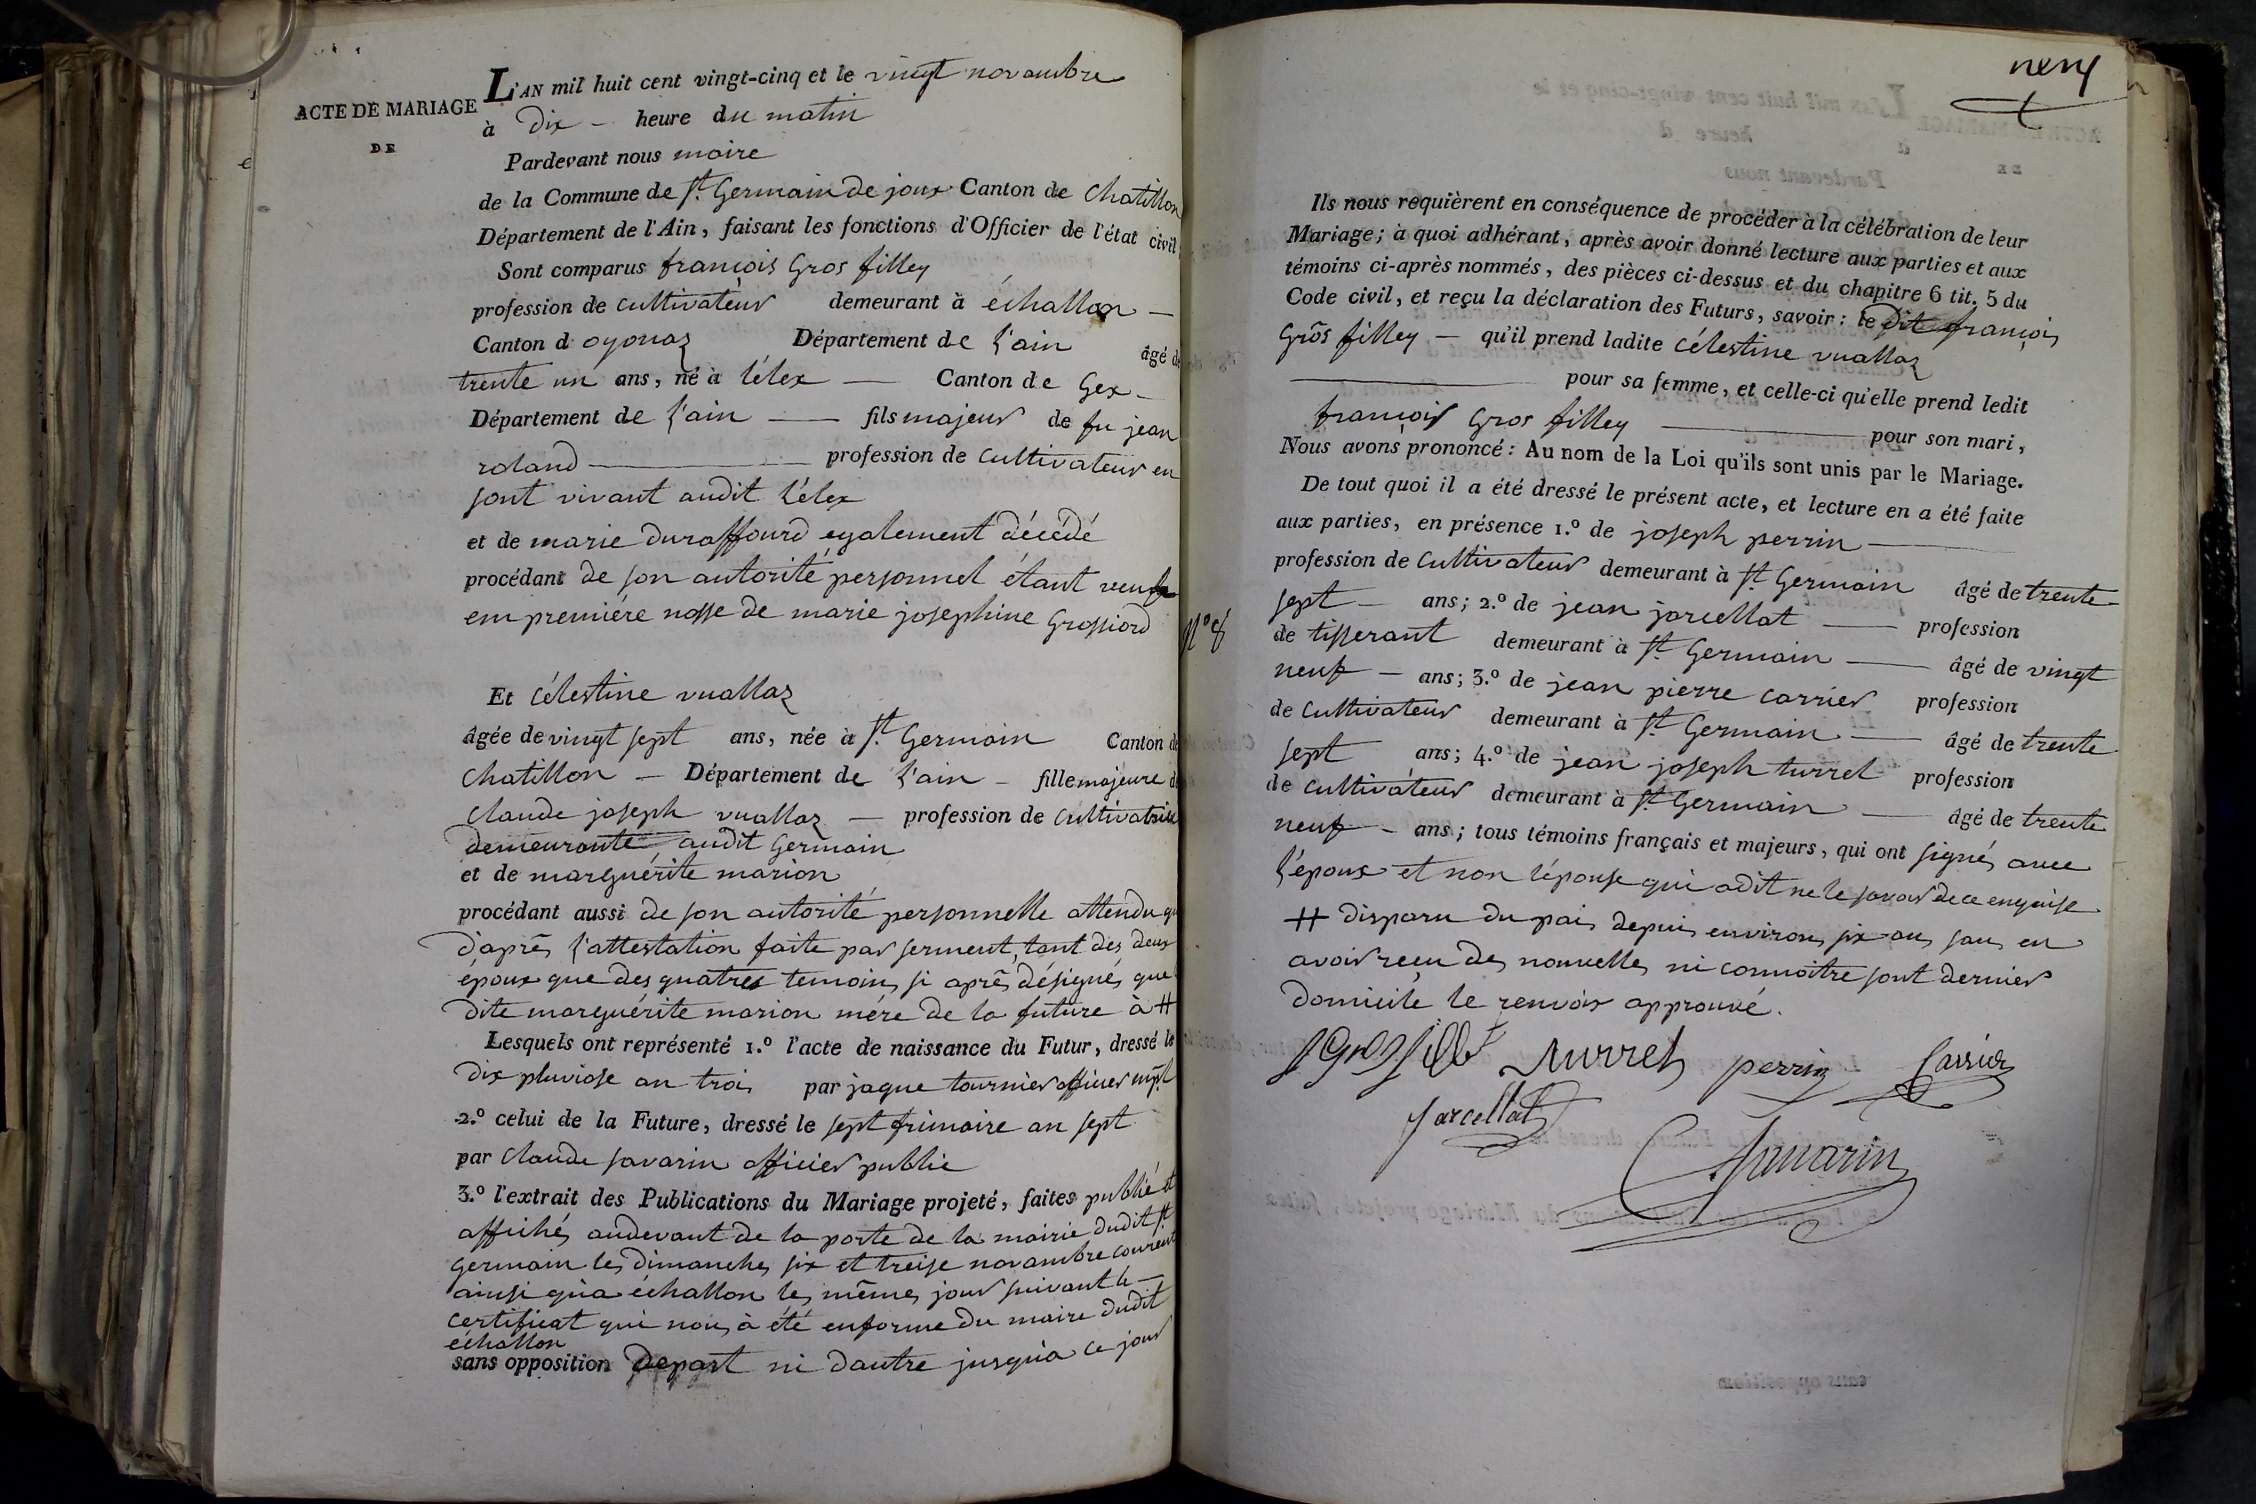 ACTE DE MARIAGE
DE
L'AN mil huit cent vingt-cinq et le vingt novambre
à Dix - heure du matin
Pardevant nous maire
de la Commune de St. Germain de joux Canton de Chatillon
Département de l'Ain, faisant les fonctions d'Officier de l'état civil
Sont comparus francois Gros filley
profession de cultivateur demeurant à échallon —
Canton d oyonaz Département de l'ain âgé de
trente un ans, né à léléx — Canton de Gex -
Département de l'ain — fils majeur de fu jean
roland — profession de cultivateur en
sont vivant audit léléx
et de marie duraffourd egalement décédé
procédant de son autorité personnel étant veuf
em premiére nosse de marie josephine Grossiord
Et Célestine vuallaz
âgée de vingt sept ans, née à St. Germain Canton de
Chatillon — Département de l'ain - fille majeure de
Claude joseph vuallaz — profession de Cultivatrice
demeurante audit Germain
et de marguérite marion
procédant aussi de son autorité personnelle attendu que
d'aprês l'attestation faite par serment, tant des deux
époux que des quatres temoins si aprês désignés que
dite marguérite marion mére de la future à #
Lesquels ont représenté 1.º l'acte de naissance du Futur, dressé le
dix pluviose an trois par jaque tournier officier
2.º celui de la Future, dressé le sept frimaire an sept
par Claude savarin officier public
3.º l'extrait des Publications du Mariage projeté, faites publié et
affiché audevant de la porte de la mairie dudit St
germain les dimanches six et treise novambre courent
ainsi qu'a échallon les mêmes jour suivant le —
certificat qui nous à été enforme du maire dudit
échallon
sans opposition depart ni dautre jusqu'a ce jour
nery
Ils nous requièrent en conséquence de procéder à la célébration de leur
Mariage; à quoi adhérant, après avoir donné lecture aux parties et aux
témoins ci-après nommés, des pièces ci-dessus et du chapitre 6 tit. 5 du
Code civil, et reçu la déclaration des Futurs, savoir: le dit françois
Gros filley — qu'il prend ladite célestine vuallaz
— pour sa femme, et celle-ci qu'elle prend ledit
francois Gros filley — pour son mari,
Nous avons prononcé: Au nom de la Loi qu'ils sont unis par le Mariage.
De tout quoi il a été dressé le présent acte, et lecture en a été faite
aux parties, en présence 1.º de joseph perrin —
profession de Cultivateur demeurant à St. Germain âgé de trente
N° 8
sept — ans; 2.º de jean jarcellat — profession
de tisserant demeurant à St. Germain — âgé de vingt
neuf — ans; 3.º de jean pierre carrier profession
de cultivateur demeurant à St. Germain — âgé de trente
sept ans; 4.º de jean joseph turrel profession
de cultivateur demeurant à St. Germain — âgé de trente
neuf - ans; tous témoins français et majeurs, qui ont signés avec
l'époux et non l'épouse qui adit ne le savoir de ce enquise
# disparu du pais depuis environs six ans sans en
avoir reçu des nouvelles ni connoitre sont dernier
domicile le renvois approuvé.
Turrel perrin Carrier
Jarcellat
Savarin